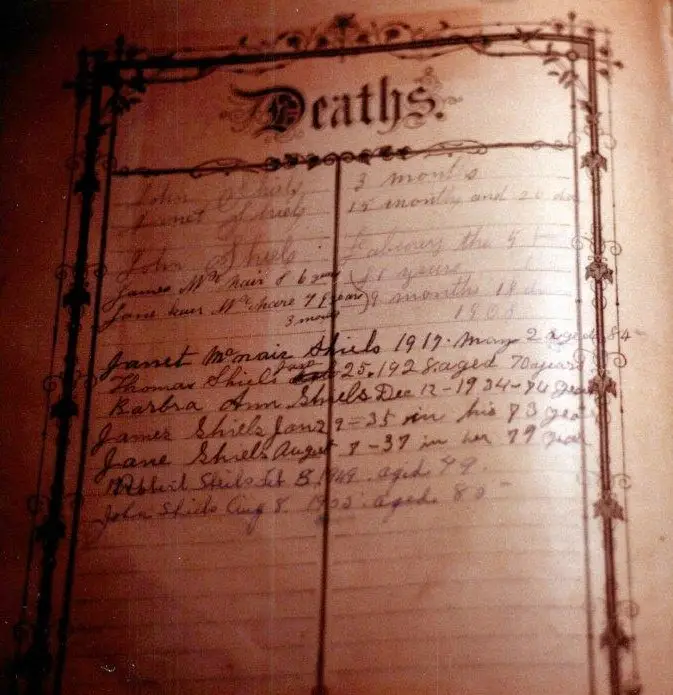 Deaths.
John Shiels 3 months
Janet Shiels 15 months and 20
John Shiels the 5
James Mc nair 8 6 years 81 years
Jane Mc 7 years 9 months 18
3 months 1908
Janet Mcnair Shiels 1919. May 2 aged 84
Thomas Shiels June 25. 1928. aged 70 years
Barbra Ann Shiels Dec 12 - 1934 - 74 years
James Shiels Jan 2 9 = 35 in his 83 year
Jane Shiels August 7 - 37 in her 79 year
Shiels 1949. aged 79.
John Shiels Aug 8. aged 80